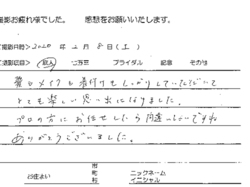 撮影お疲れ様でした。 感想をお願いいたします。
撮影月日> 2020 年 2月 8日(土)
撮影項目> 成人 七五三 ブライダル 記念 その他
髪もメイクも着付けもしっかりしていただいて
とても楽しい思い出になりました。
プロの方にお任せしたら間違いないですね
ありがとうございました。
お住まい 市 町 村 ニックネーム イニシャル